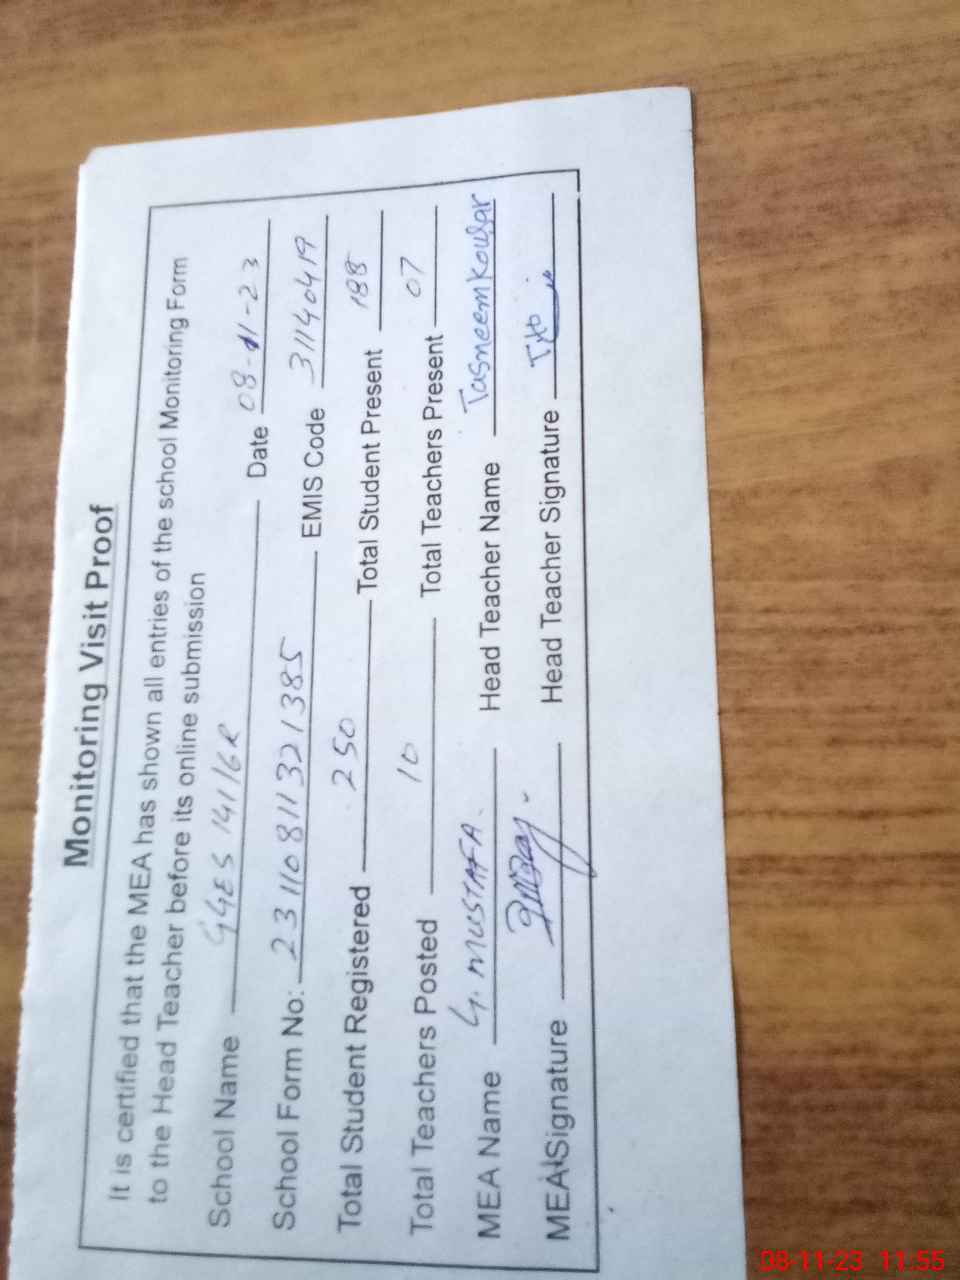 Monitoring Visit Proof
It is certified that the MEA has shown all entries of the school Monitoring Form
to the Head Teacher before its online submission
School Name GGES 141/6R Date 08-11-23
School Form No: 23110811321385 EMIS Code 31140419
Total Student Registered 250 Total Student Present 188
Total Teachers Posted 10 Total Teachers Present 07
MEA Name G. MUSTAFA. Head Teacher Name Tasneem Kousar
MEA Signature Head Teacher Signature
08-11-23 11:55